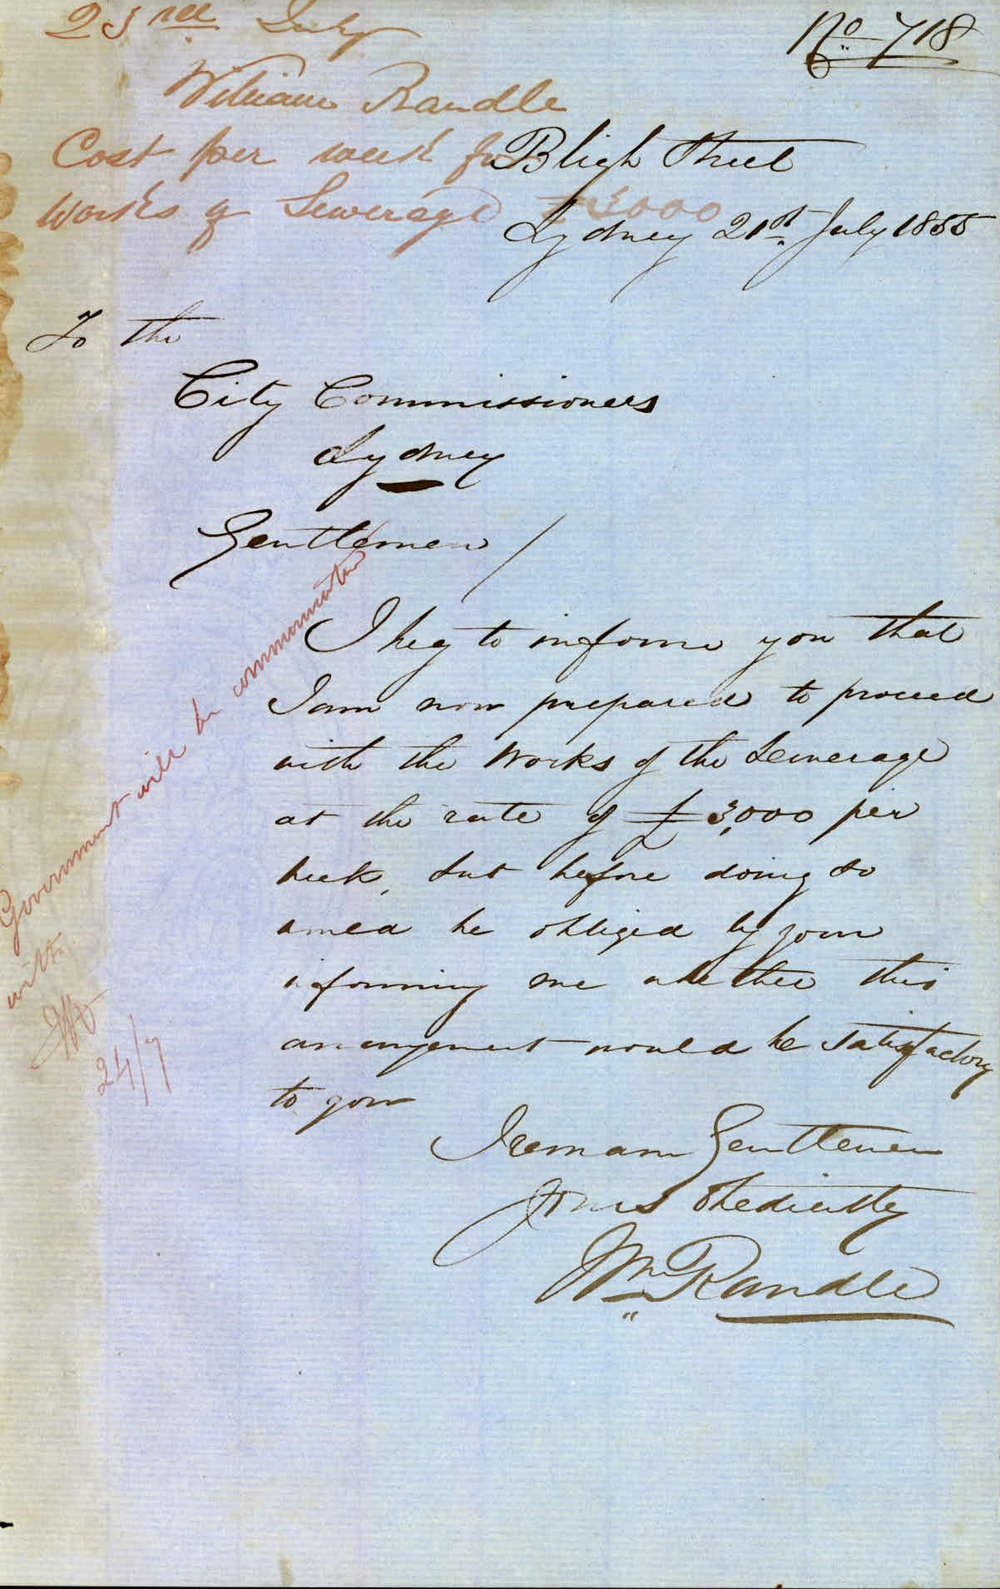 23rd July
No 718
William Randle
Cost per week for
Works of Sewerage £3000
Bligh Street
Sydney 21st July 1855
To the
City Commissioners
Sydney
Gentlemen /
I beg to inform you that
I am now prepared to proceed
with the Works of the Sewerage
at the rate of £3,000 per
week, but before doing so
would be obliged by your
informing me whether this
arrangement would be satisfactory
to you
I remain Gentlemen
Yours obediently
Wm Randle
Government will be communicated
with
24/7